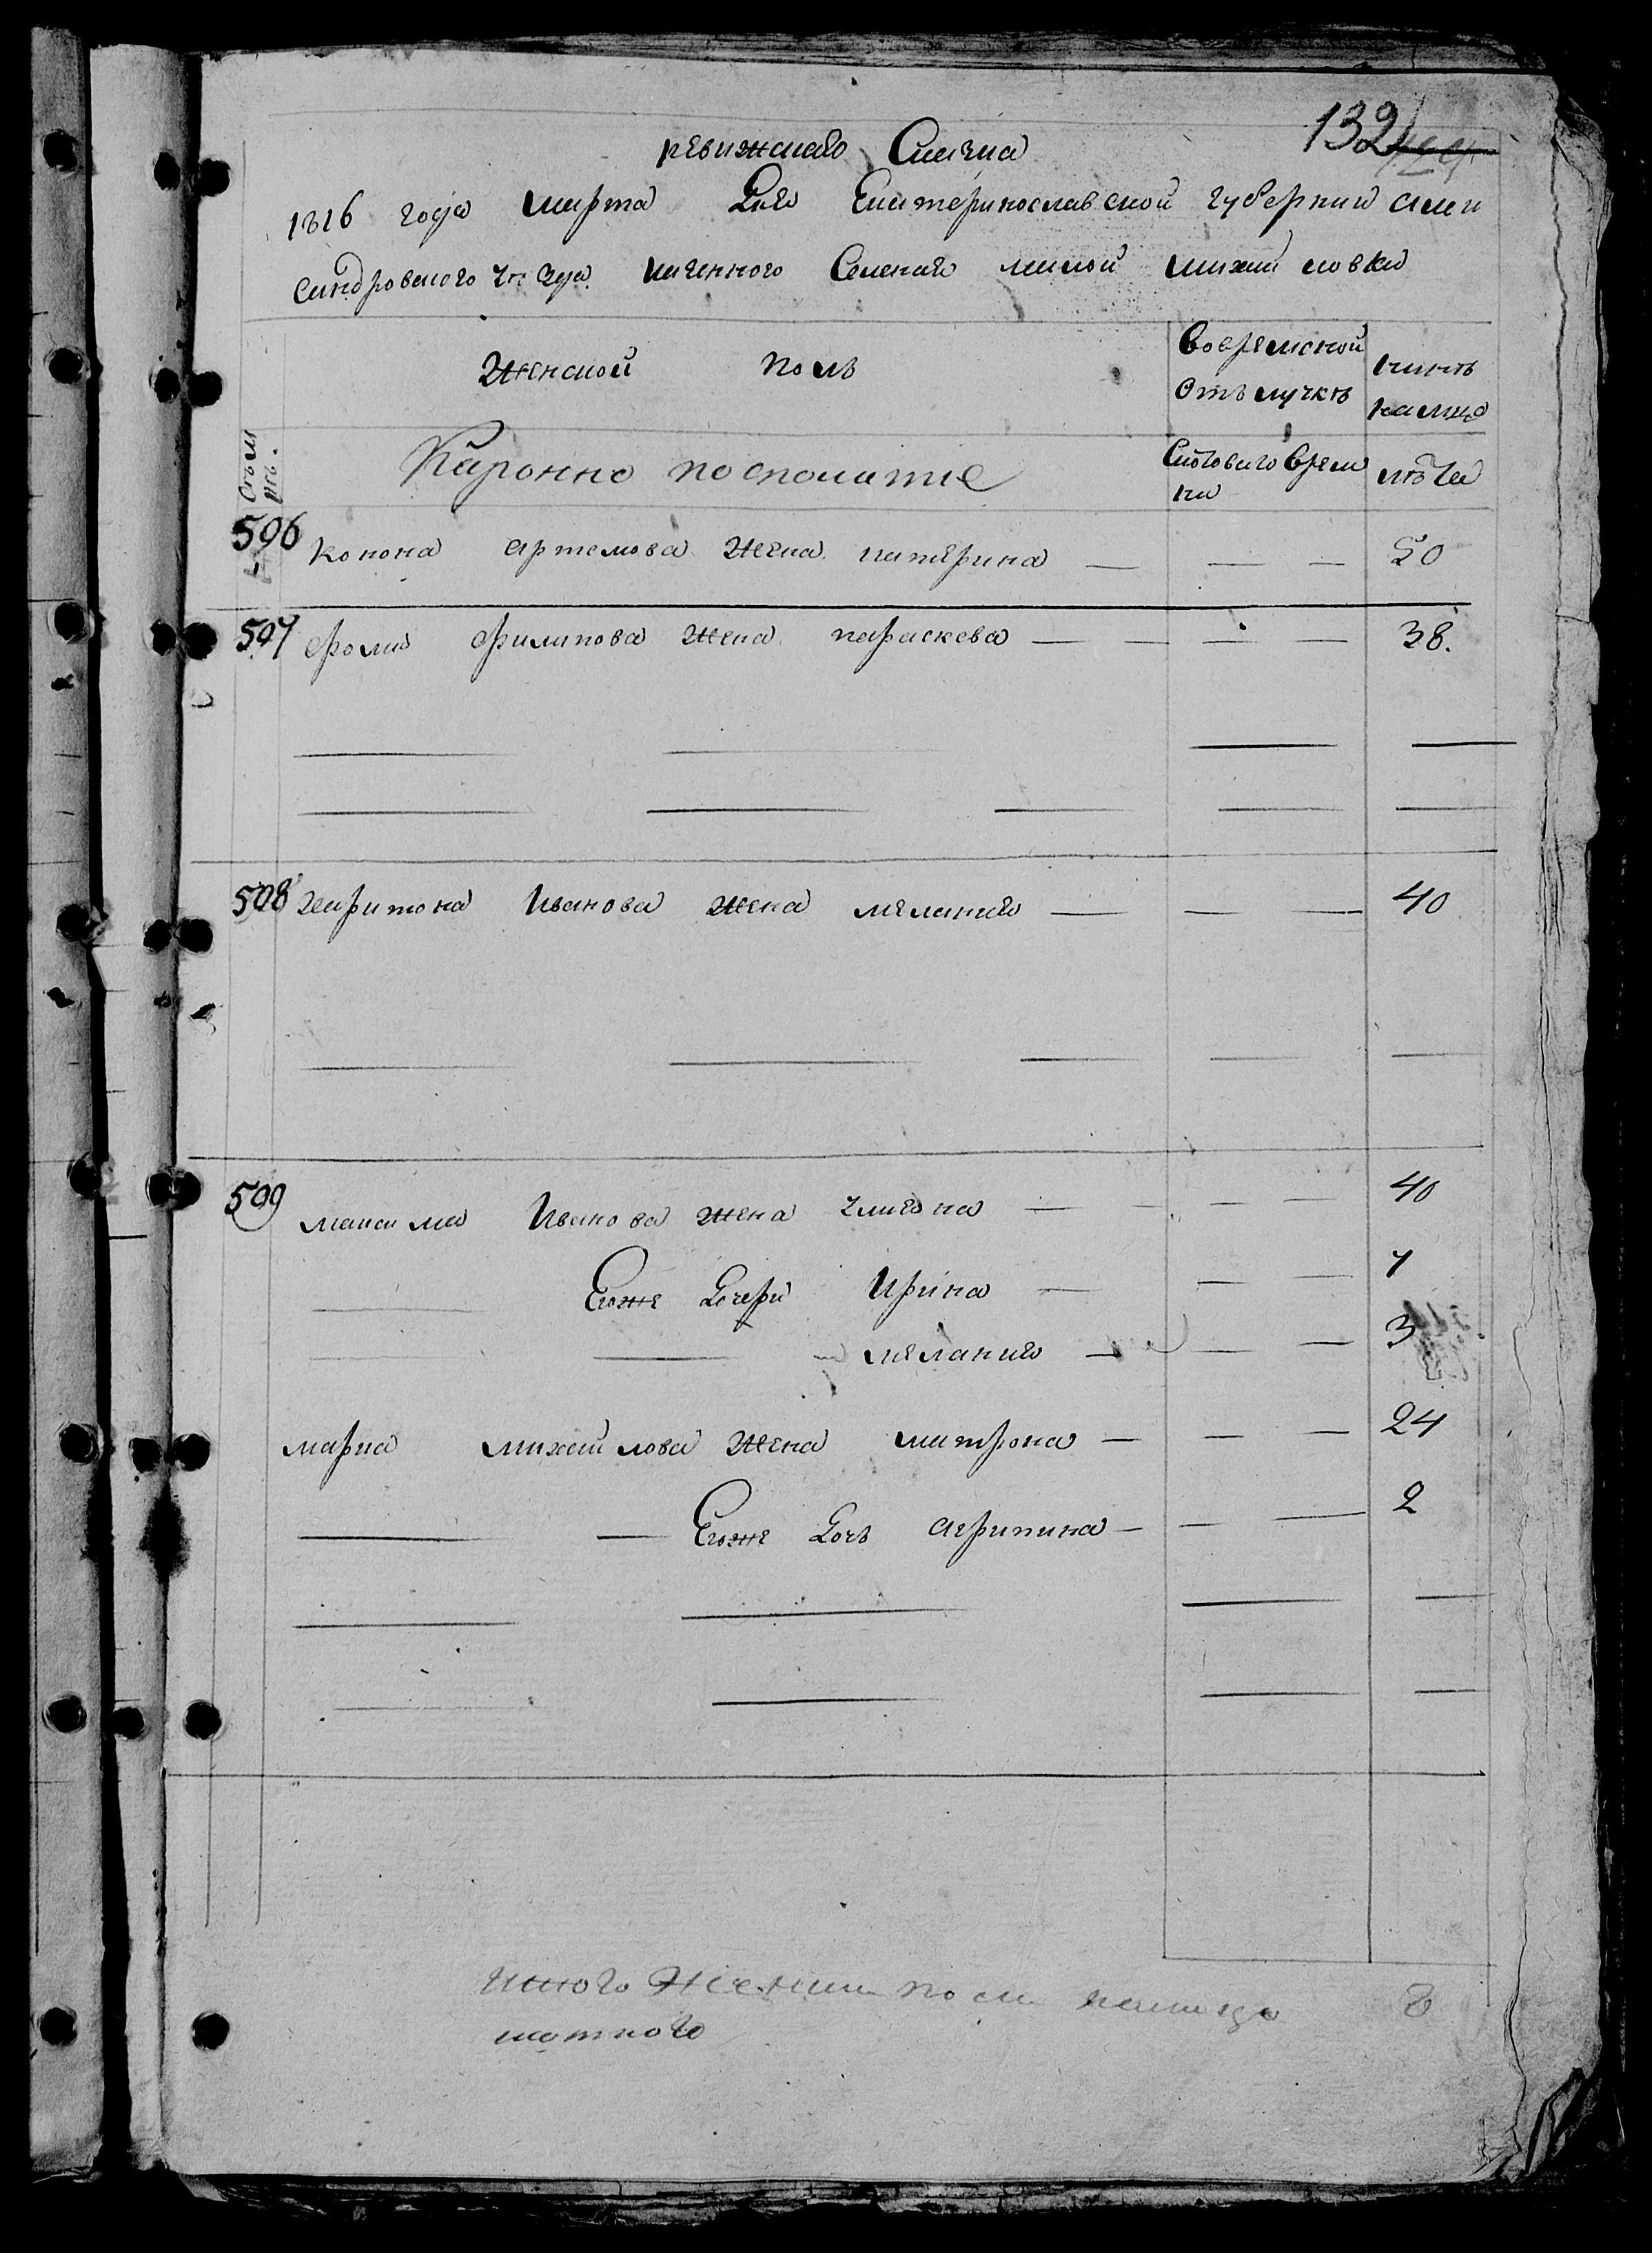 132
ревижская Сказка
1816 года марта Дня Екатеринославской губернии Алек
сандровского уезда казенного Селения малой михайловки
Женской полъ
Вовременой отълучкѣ
нынѣ налицо
Семьи
Каронно посполитие
Скотоваго времени
лѣта
596 Конона артемова Жена катерина — — — 50
597 фоми филипова Жена параскева — — — — 38.
598 Харитона Иванова Жена мелания — — — 40
599 максима Иванова жена улияна — — — 40
Егоже Дочери Ирина — — — 7
мелания — — — 3
марка михайлова Жена матрона — — — 24
Егоже Дочь агрипина — — — 2
итого Женска пола налицо 8